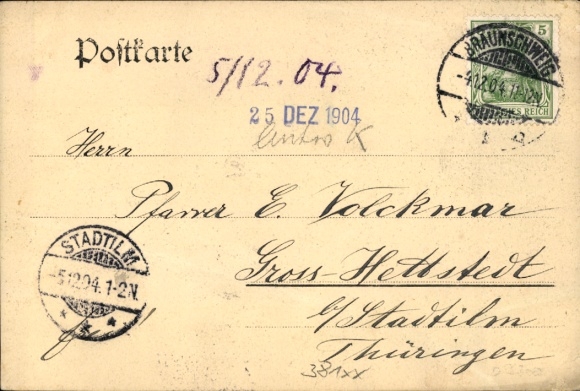 Postkarte
5
BRAUNSCHWEIG
-4.12.04.11-12V.
REICH
5/12. 04.
25 DEZ 1904
Herrn
Pfarrer E. Volckmar
Gross-Hettstedt
b/Stadtilm
Thüringen
STADTILM
-5.12.04.1-2N.
381xx